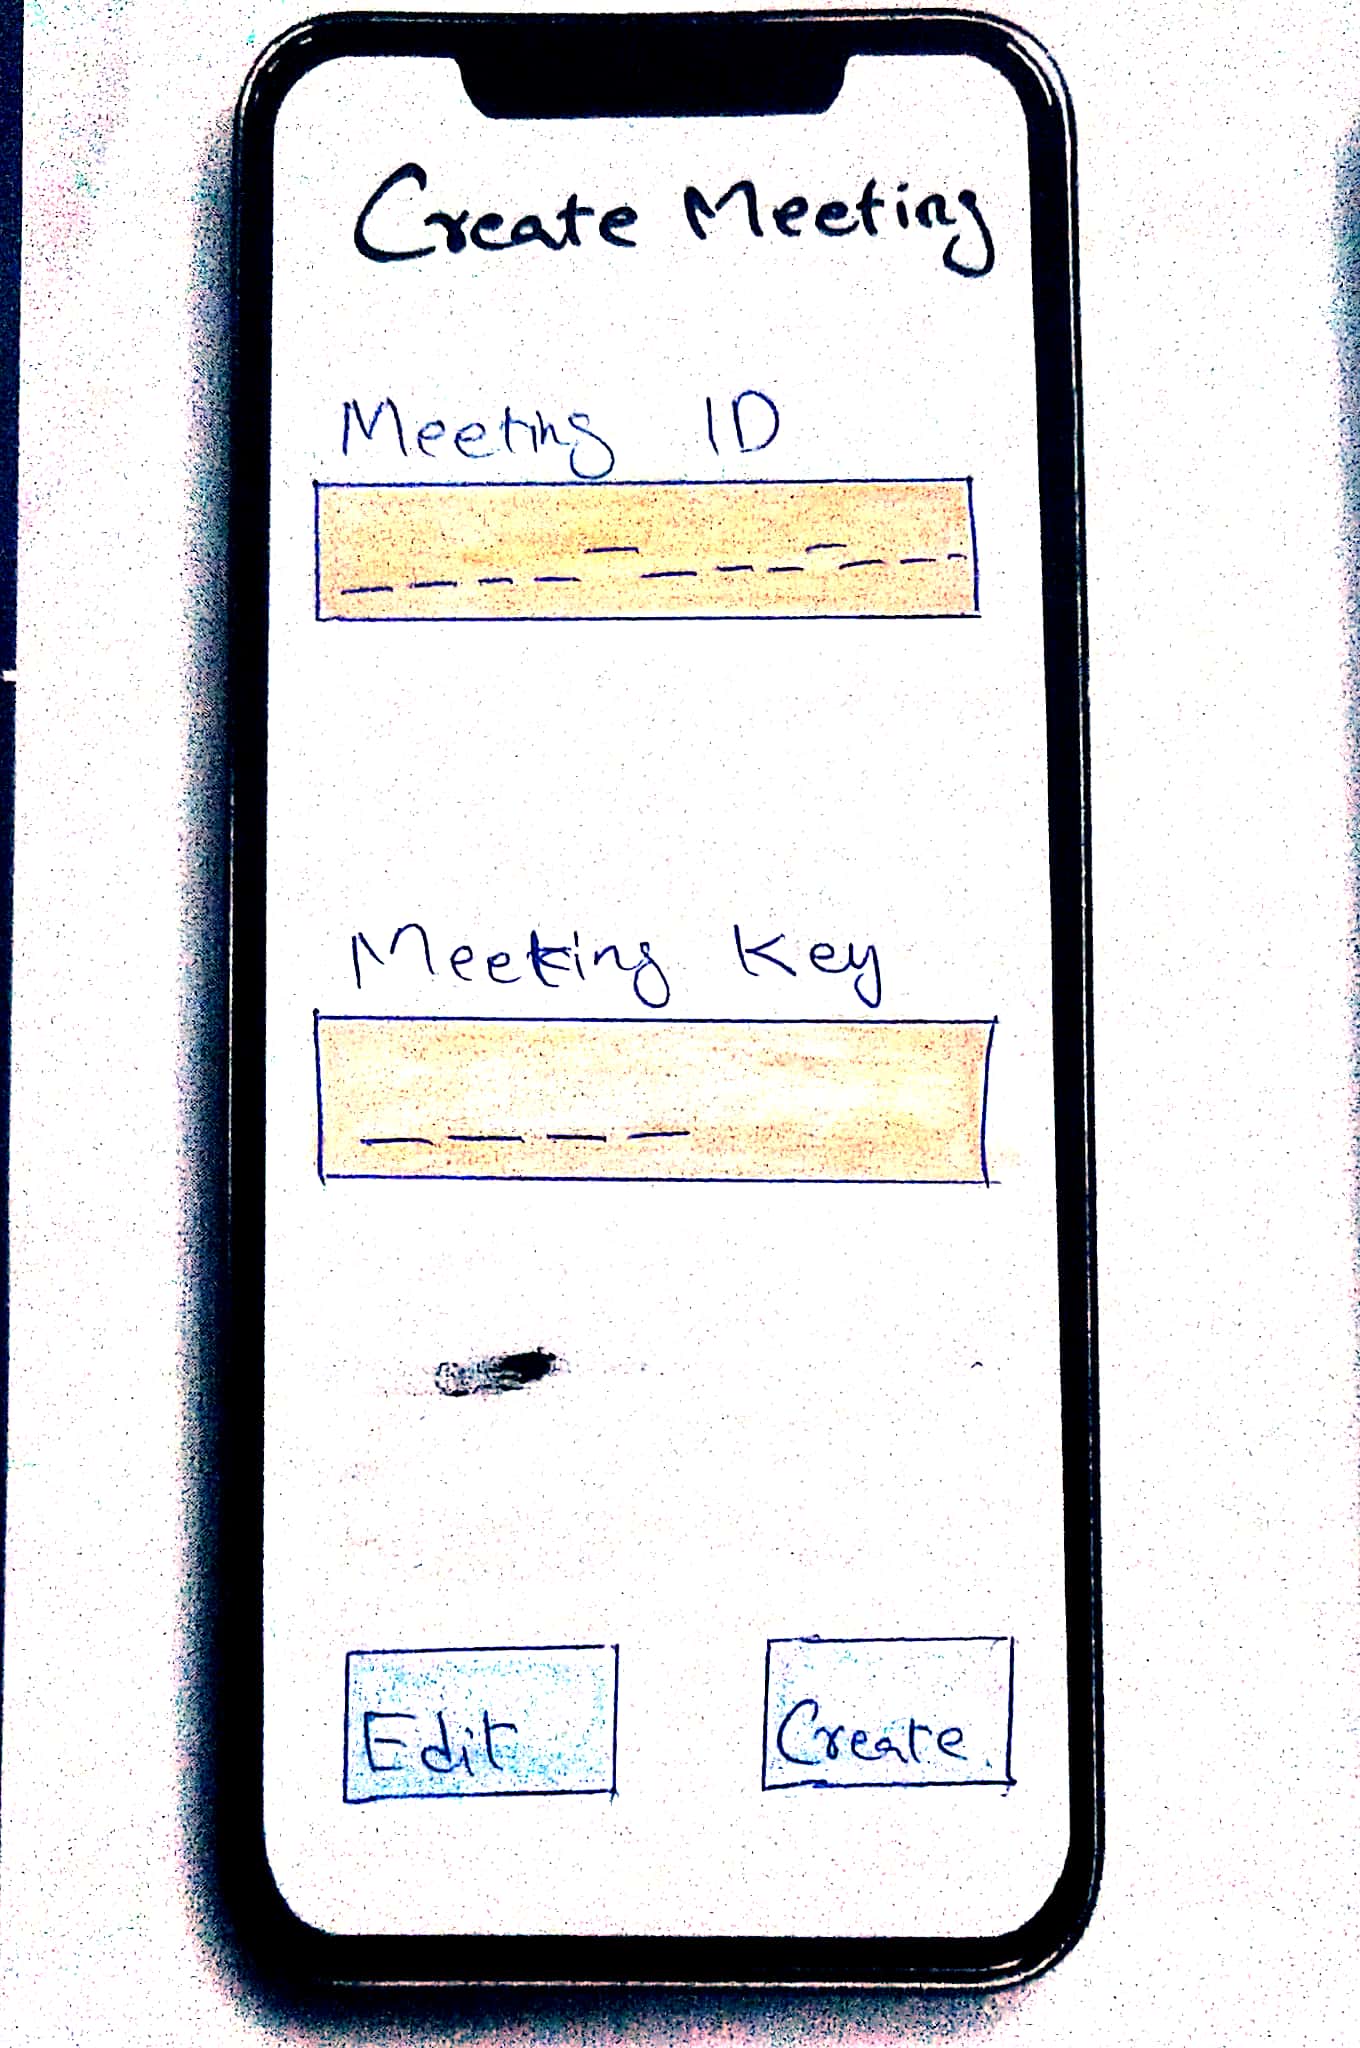 Create Meeting
Meeting ID
Meeting Key
Edit
Create